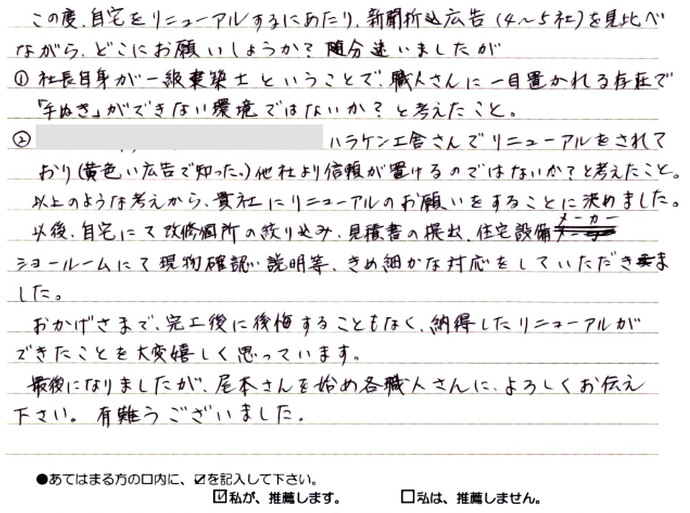 この度、自宅をリニューアルするにあたり、新聞折込広告(4〜5社)を見比べ
ながら、どこにお願いしようか?随分迷いましたが
① 社長自身が一級建築士ということで、職人さんに一目置かれる存在で
「手ぬき」ができない環境ではないか?と考えたこと。
② ハラケン工舎さんでリニューアルをされて
おり(黄色い広告で知った。)他社より信頼が置けるのではないか?と考えたこと。
以上のような考えから、貴社にリニューアルのお願いをすることに決めました。
以後、自宅にて改修個所の絞り込み、見積書の提出、住宅設備メーカー
ショールームにて現物確認、説明等、きめ細かな対応をしていただきま
した。
おかげさまで、完工後に後悔することもなく、納得したリニューアルが
できたことを大変嬉しく思っています。
最後になりましたが、尾本さんを始め各職人さんに、よろしくお伝え
下さい。有難うございました。
●あてはまる方の口内に、☑を記入して下さい。
☑私が、推薦します。 □私は、推薦しません。